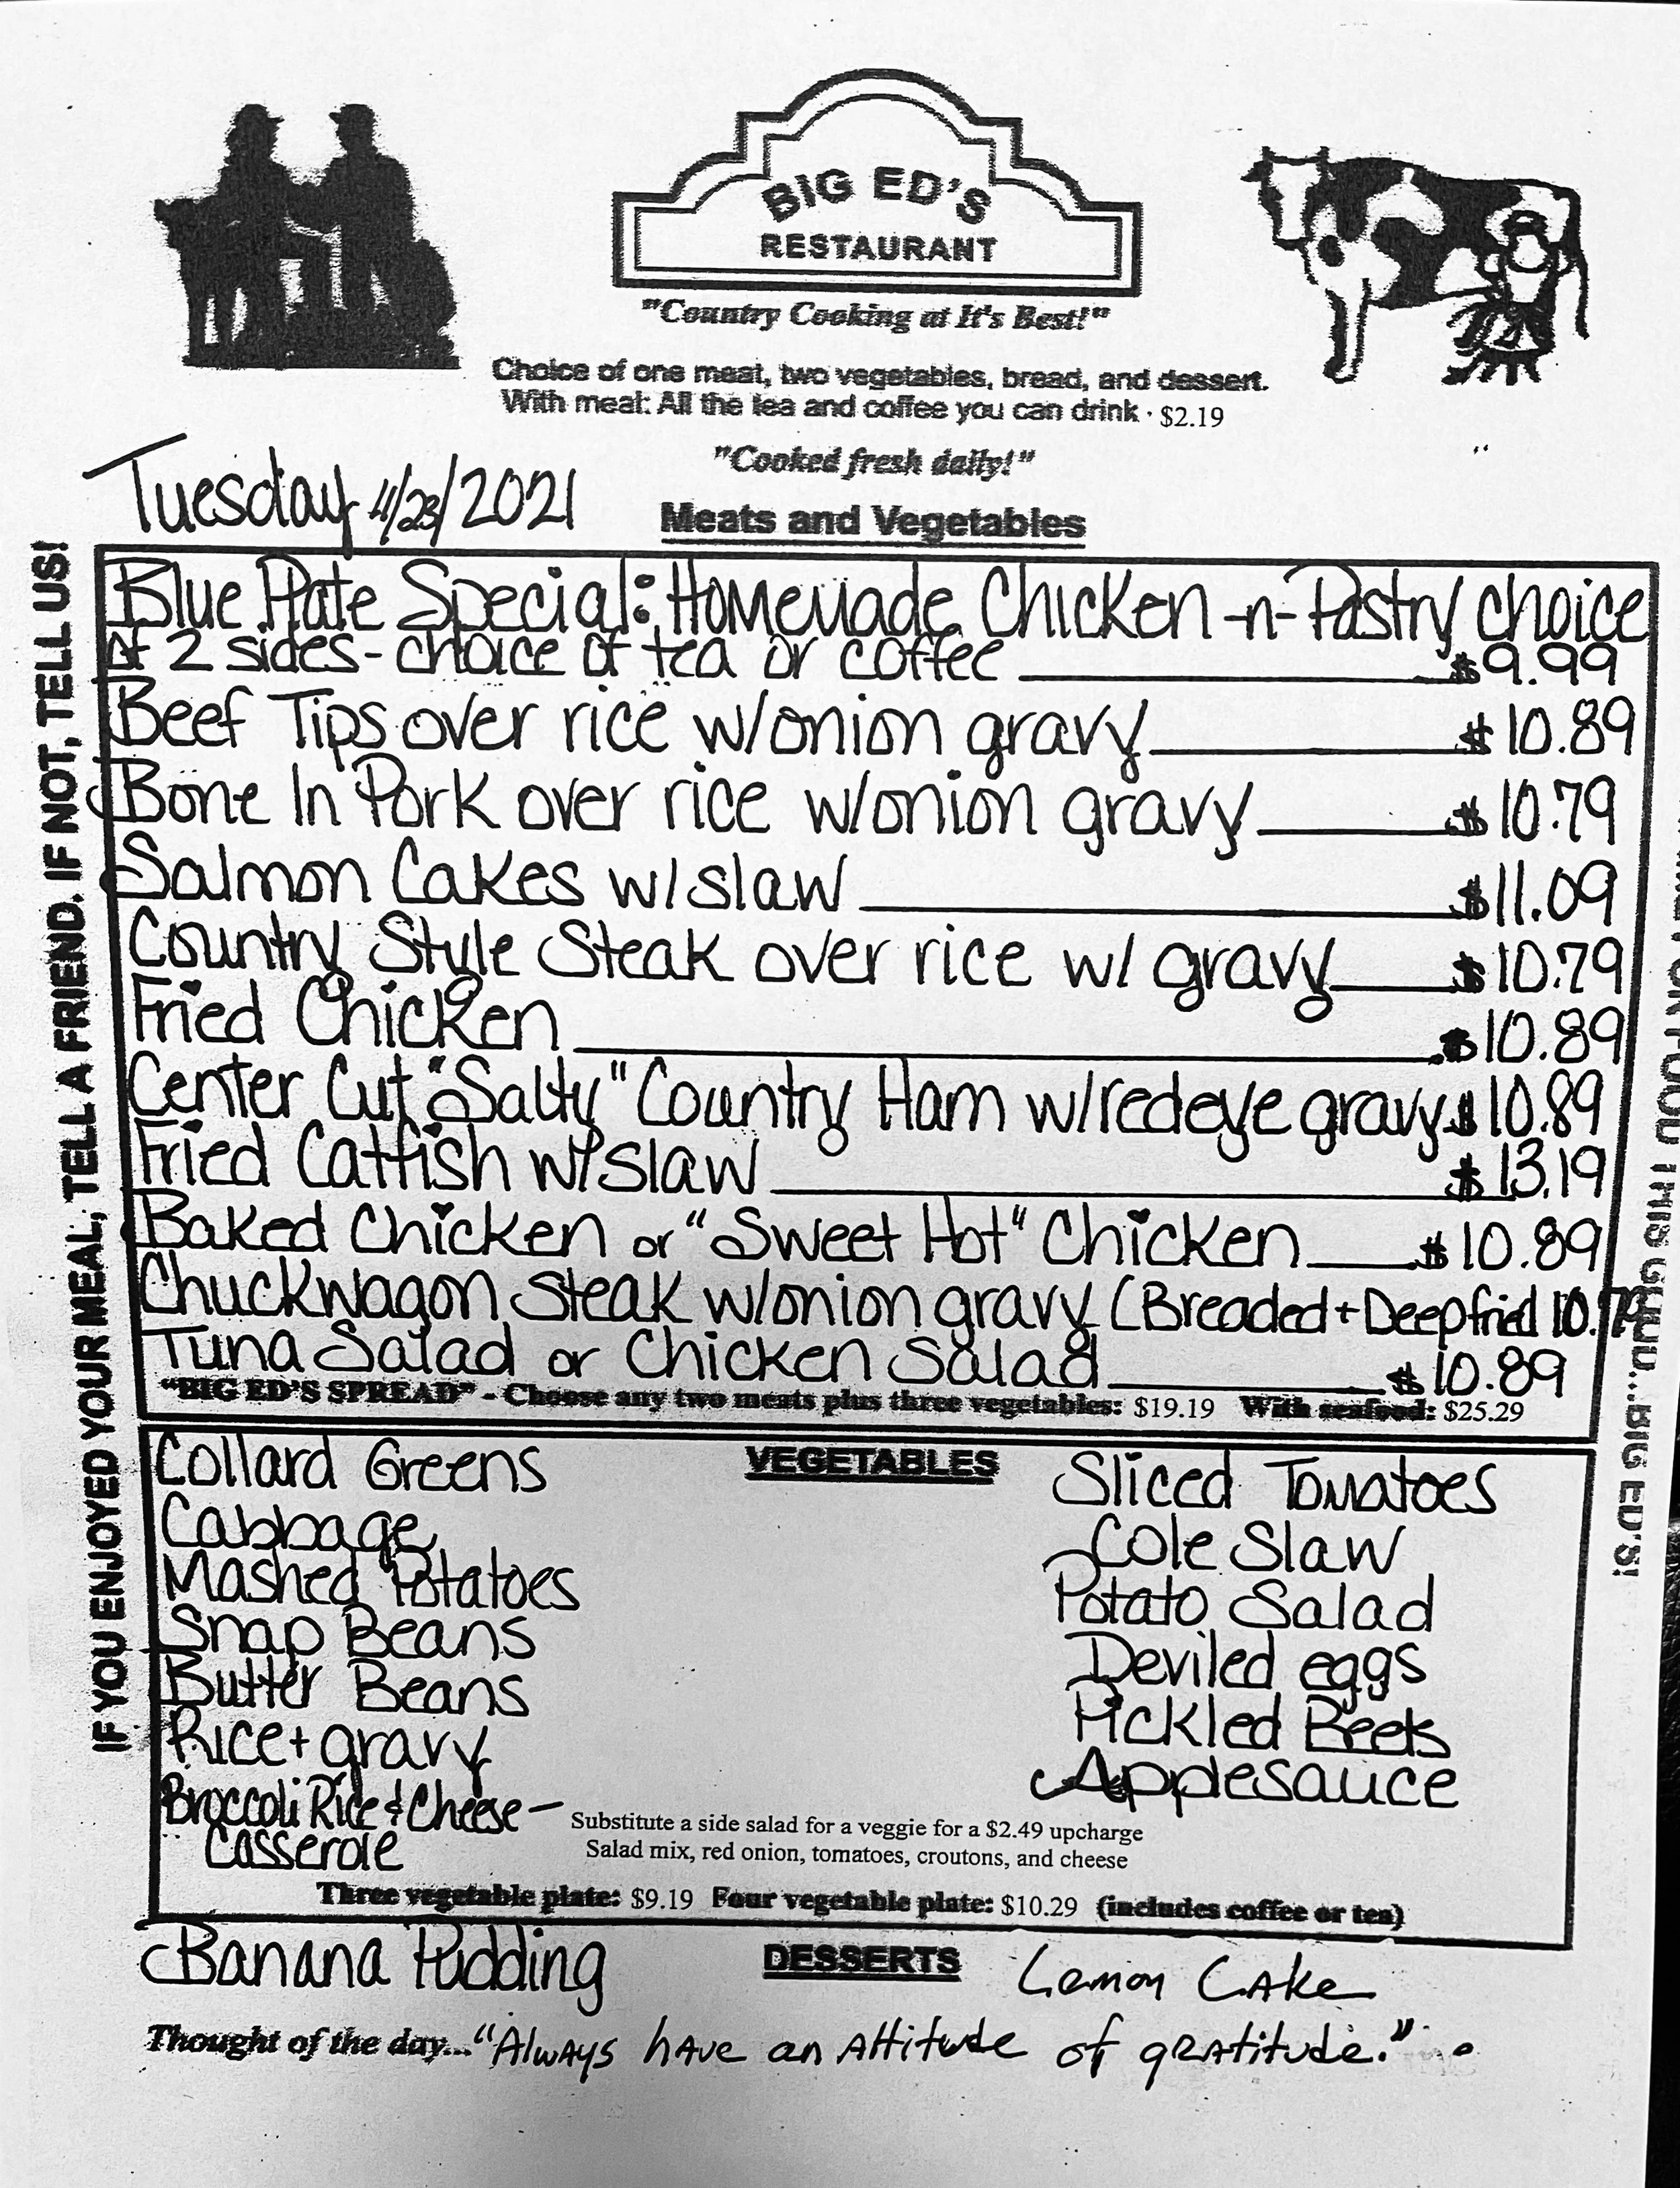 BIG ED'S
RESTAURANT
"Country Cooking at It's Best!"
Choice of one meat, two vegetables, bread, and dessert.
With meal: All the tea and coffee you can drink · $2.19
"Cooked fresh daily!"
Tuesday 11/23/2021
Meats and Vegetables
Blue Plate Special: Homemade Chicken -n- Pastry choice
of 2 sides - choice of tea or coffee $9.99
Beef Tips over rice w/onion gravy $10.89
Bone In Pork over rice w/onion gravy $10.79
Salmon Cakes w/slaw $11.09
Country Style Steak over rice w/ gravy $10.79
Fried Chicken $10.89
Center Cut "Salty" Country Ham w/redeye gravy $10.89
Fried Catfish w/slaw $13.19
Baked Chicken or "Sweet Hot" Chicken $10.89
Chuckwagon Steak w/onion gravy (Breaded + Deep fried 10.79
Tuna Salad or Chicken Salad $10.89
"BIG ED'S SPREAD" - Choose any two meats plus three vegetables: $19.19 With seafood: $25.29
VEGETABLES
Collard Greens
Cabbage
Mashed Potatoes
Snap Beans
Butter Beans
Rice + gravy
Broccoli Rice & Cheese -
Casserole
Sliced Tomatoes
Cole Slaw
Potato Salad
Deviled eggs
Pickled Beets
Applesauce
Substitute a side salad for a veggie for a $2.49 upcharge
Salad mix, red onion, tomatoes, croutons, and cheese
Three vegetable plate: $9.19 Four vegetable plate: $10.29 (includes coffee or tea)
DESSERTS
Banana Pudding
Lemon Cake
Thought of the day... "Always have an attitude of gratitude."
IF YOU ENJOYED YOUR MEAL, TELL A FRIEND. IF NOT, TELL US!
FOR FOOD THIS GOOD... BIG ED'S!